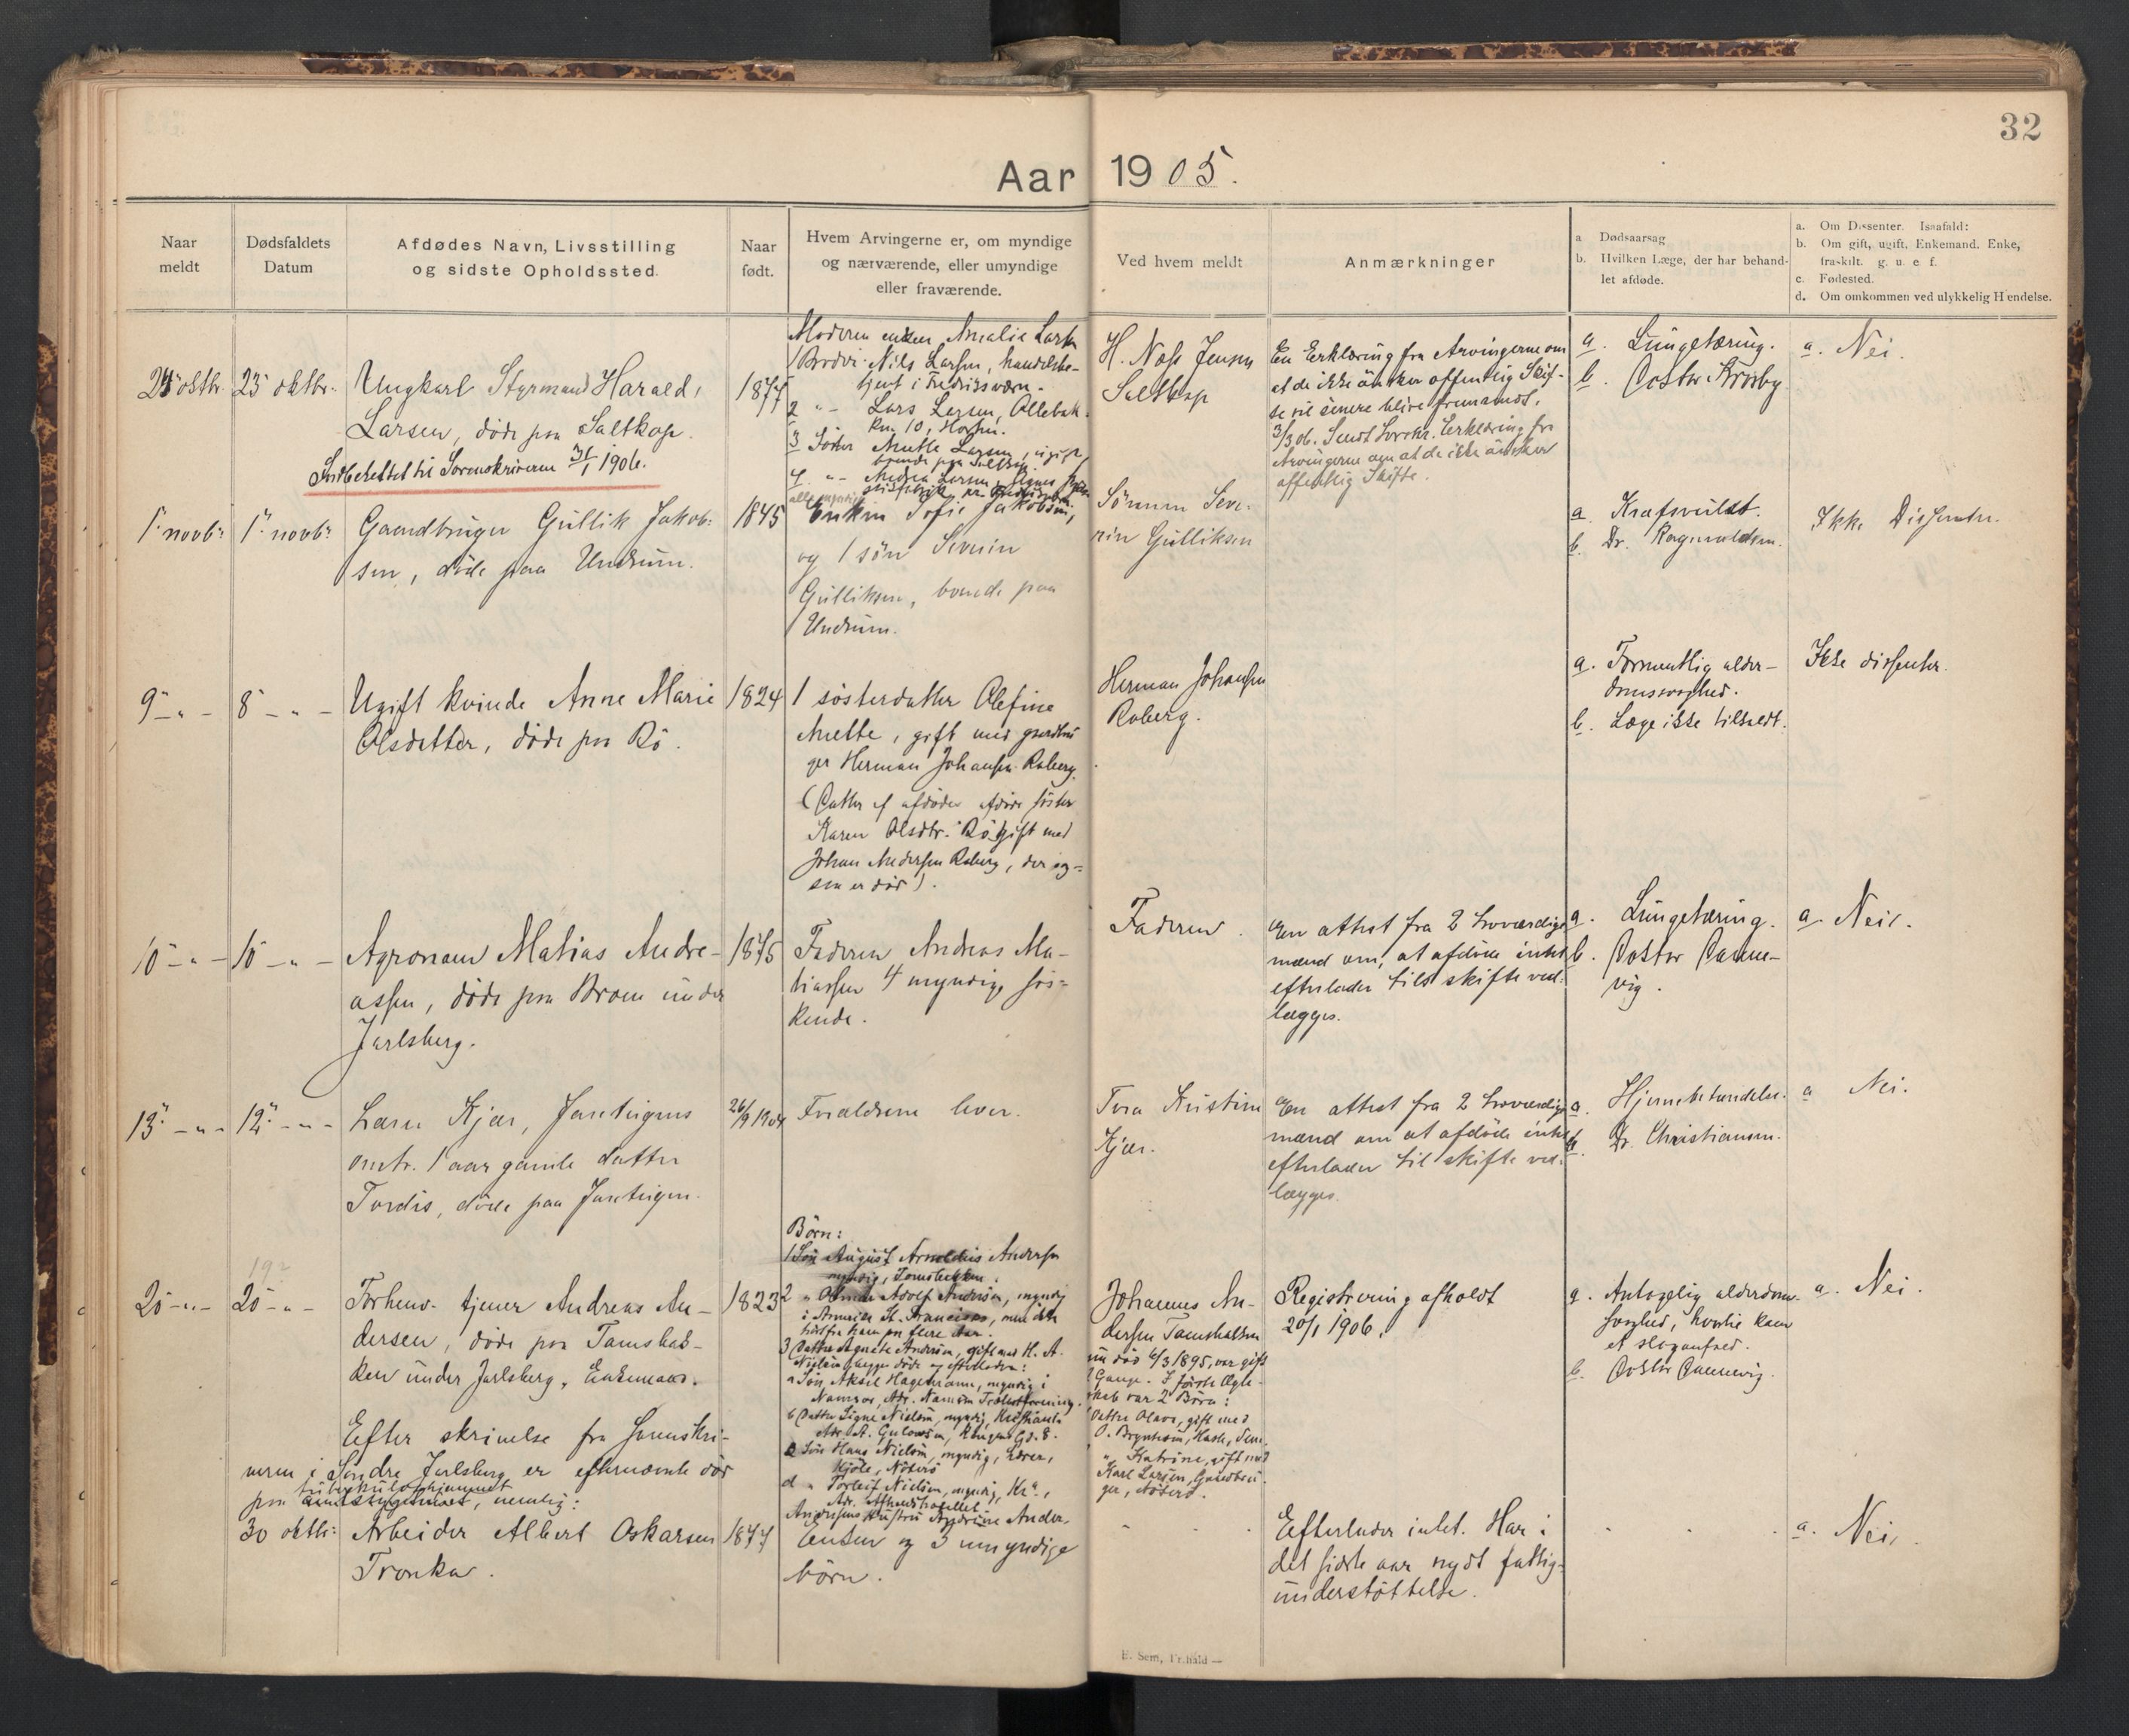 32
Aar 1905.
Naar meldt
Dødsfaldets Datum
Afdødes Navn, Livsstilling og sidste Opholdssted.
Naar født.
Hvem Arvingerne er, om myndige og nærværende, eller umyndige eller fraværende.
Ved hvem meldt
Anmærkninger
a Dødsaarsag
b. Hvilken Læge, der har behandlet afdøde.
a. Om Dissenter. Isaafald:
b. Om gift, ugift, Enkemand, Enke, fraskilt. g. u. e. f.
c. Fødested.
d. Om omkommen ved ulykkelig Hændelse.
25 oktbr. 25 oktbr.
Ungkarl Styrmand Harald
Larsen, døde paa Saltkop.
Indberettet til Sorenskriveren 31/1 1906.
1877
Moderen enken Amalie Larsen
1 Broder Nils Larsen, handelsbe-
tjent i Fredriksværn.
2 " – Lars Larsen, Ollebak-
ken 10, Horten.
3 Søster Anette Larsen, ugift,
boende paa Saltkop.
4 " – Andrea Larsen
alle myndige
H. Nass Jensen
Saltkop
En Erklæring fra Arvingerne om
at de ikke ønsker offentlig Skif-
te vil senere blive fremsendt.
3/3 06. Sendt Sorskr. Erklæring fra
Arvingerne om at de ikke ønsker
offentlig Skifte.
a. Lungetæring.
b. Doktor Krosby
a. Nei.
1. novbr. 1. novbr.
Gaardbruger Gullik Jakob-
sen, døde paa Undrum.
1845
Enken Sofie Jakobsen,
og 1 søn Severin
Gulliksen, boende paa
Undrum.
Sønnen Seve-
rin Gulliksen
a. Kræfsvulst.
b. Dr. Ragnvaldsen.
Ikke Dissenter.
9 – " – 8 – " –
Ugift kvinde Anne Marie
Olsdatter, døde paa Rø.
1824
1 søsterdatter Olefine
Anette, gift med gaardbru-
ger Herman Johansen Roberg.
(Datter af afdødes afdøde søster
Karen Olsdtr. Rø, gift med
Johan Andersen Roberg, der og-
saa er død).
Herman Johansen
Roberg.
a. Formentlig alder-
domssvaghed.
b. Læge ikke tilkaldt.
Ikke dissenter.
10 – " – 10 – " –
Agronom Matias Andre-
assen, døde paa Broen under
Jarlsberg.
1875
Faderen Andreas Ma-
tiassen 4 myndige søs-
kende.
Faderen.
En attest fra 2 troværdige
mænd om, at afdøde intet
efterlader til skifte ved-
lægges.
a. Lungetæring.
b. Doktor Danne-
vig.
a. Nei.
13 – " – 12. – " –
Lars Kjær, Jareteigens
omtr. 1 aar gamle datter
Tordis, døde paa Jareteigen.
26/9 1904
Forældrene lever.
Tora Kristine
Kjær.
En attest fra 2 troværdige
mænd om at afdøde intet
efterlader til skifte ved-
lægges.
a. Hjernebetændelse.
b. Dr. Christiansen.
a Nei.
192
20 – " – 20 – " –
Forhenv. tjener Andreas An-
dersen, døde paa Tamsbak-
ken under Jarlsberg, Enkemand.
1823
Børn:
1 Søn August Arnoldus Andersen
myndig, Tomsbakken.
2 " Adolf Andersen, myndig
i Amerika St. Francisco, men ikke
hørt fra ham paa flere Aar.
3 Datter Agnete Andersen, gift med H. A.
Nielsen begge døde og efterladere:
a Søn Aksel Hagemann, myndig i
Namsos, Adr. Namsen Trælastforening.
b Datter Signe Nielsen, myndig, Kristiania
Adr. A. Gulowsen,
c Søn Hans Nielsen, myndig,
Kjøle, Nøterø
d " Torleif Nielsen, myndig, Kr.a,
Andersens Hustru Andrine Ander-
Johannes An-
dersen Tamsbakken
nu død 6/3 1895, var gift
2 Gange. I første Ægte-
skab var 2 Børn:
Datter Olava, gift med
O. Bryntesen,
" Katrine, gift med
Karl Larsen, Gaardbru-
ger, Nøterø.
Registrering afholdt
20/1 1906.
a. Antagelig alderdoms-
svaghed, hvortil kom
et slaganfald.
b. Doktor Dannevig.
a. Nei.
Efter skrivelse fra Sorenskri-
veren i Søndre Jarlsberg er efternævnte død
paa tuberkuloshjemmet, nemlig:
30 oktbr. Arbeider Albert Oskarsen
Tronka.
1877
Enken og 3 umyndige
børn.
Efterlader intet. Har i
det sidste aar nydt fattig-
understøttelse.
a. Nei.
E. Sem, Fr.hald —